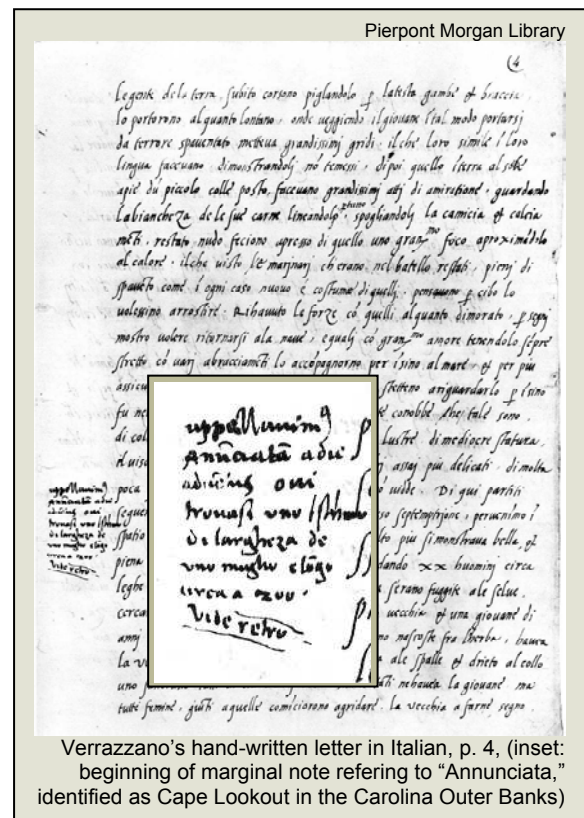 Pierpont Morgan Library
4
le gente de la terra, subito corsono piglandolo p la testa gambe et braccia
lo portorono alquanto lontano, onde veggiendo il giovane ital modo portarsj
da terrore spaventato metteva grandissimj gridi, il che loro simile i loro
lingua facevano, dimonstrandolj nō temessi, di poi quello iterra al sole
a pie du piccolo colle posto, facevano grandissimj attj di amiratione, guardando
la biancheza de le sue carne lineandolo, spogliandolj la camicia et calcia
mēti, restato nudo feciono apresso di quello uno gran^mo foco aproximādolo
al calore, il che visto le marjnarj ch erano nel batello restati, pienj di
spavēto come i ogni caso nuovo e costume di quellj, pensavano p cibo lo
volessino arrostire. Rihavuto le forze cō quelli alquanto dimorato, p segnj
mostro volere ritornarsj ala nave, e qualj co gran^mo amore tenendolo sēpre
stretto cō varj abracciamēti lo accōpagnorno p isino al mare, et per piu
assicu stetteno a riguardarlo p isino
fu ne conobbe che tale sono
di col lustre di mediocre statura
il viso assaj piu delicati, di molta
poca vide. Di qui partiti
seguen so septemptrione, pervenimo i
spatio lto piu si monstrava bella, et
piena dando xx huominj circa
leghe serano fuggite ale selve.
cercan vecchia et una giovane di
annj no nascoste fra lherba, haveva
la ve a ale spalle et drieto al collo
uno ati ne haveva la giovane, ma
tutte femine, giūti a quelle comiciorono a gridare, la vecchia a farne segno
appellavim^9
Annūciatā a die
advētus ovi
trovasi uno isthmo
de largheza de
uno miglio e lōgo
circa a 200.
vide retro
Verrazzano's hand-written letter in Italian, p. 4, (inset:
beginning of marginal note refering to “Annunciata,”
identified as Cape Lookout in the Carolina Outer Banks)